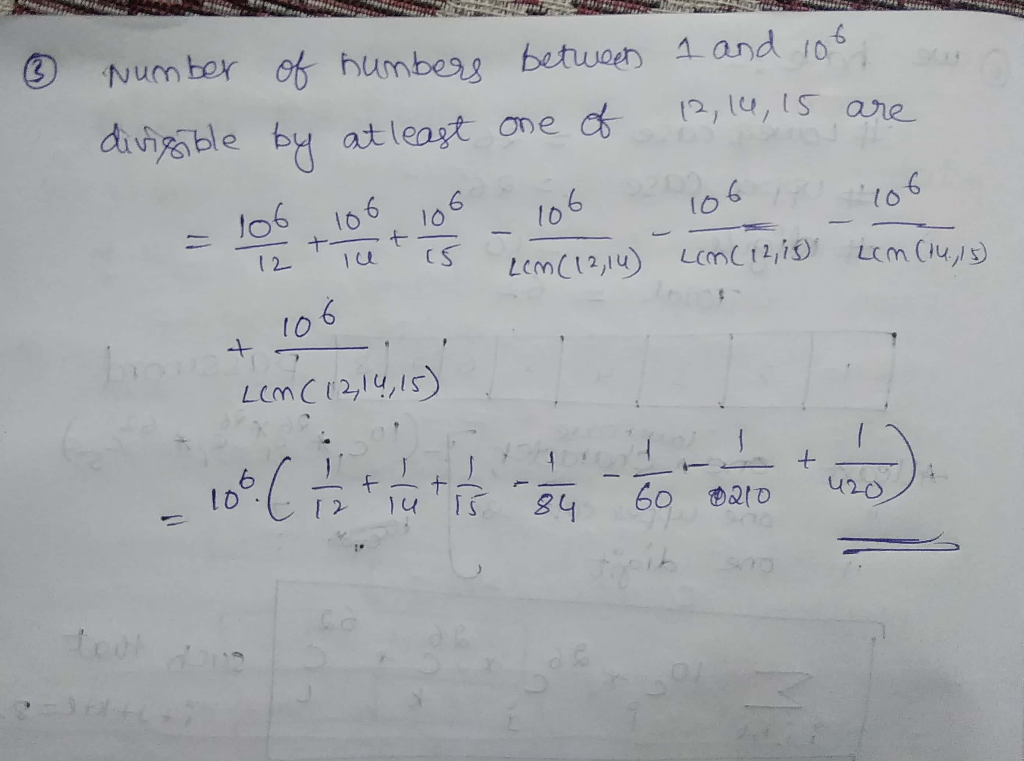 ③ Number of numbers between 1 and 10⁶
divisible by atleast one of 12, 14, 15 are
= 10⁶/12 + 10⁶/14 + 10⁶/15 - 10⁶/LCM(12,14) - 10⁶/LCM(12,15) - 10⁶/LCM(14,15)
+ 10⁶/LCM(12,14,15)
= 10⁶.( 1/12 + 1/14 + 1/15 - 1/84 - 1/60 - 1/210 + 1/420 )